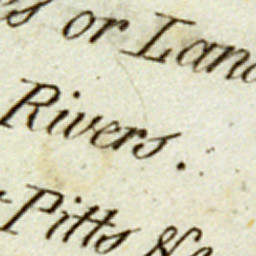 or Land
Rivers.
Pitts &c